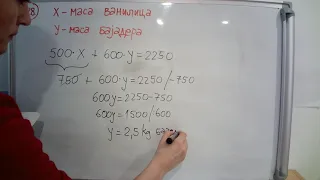 8
X-маса ванилица
У-маса бајадера
500·X + 600·y = 2250
750 + 600·y = 2250 /-750
600y = 2250-750
600y = 1500 /:600
y = 2,5 kg